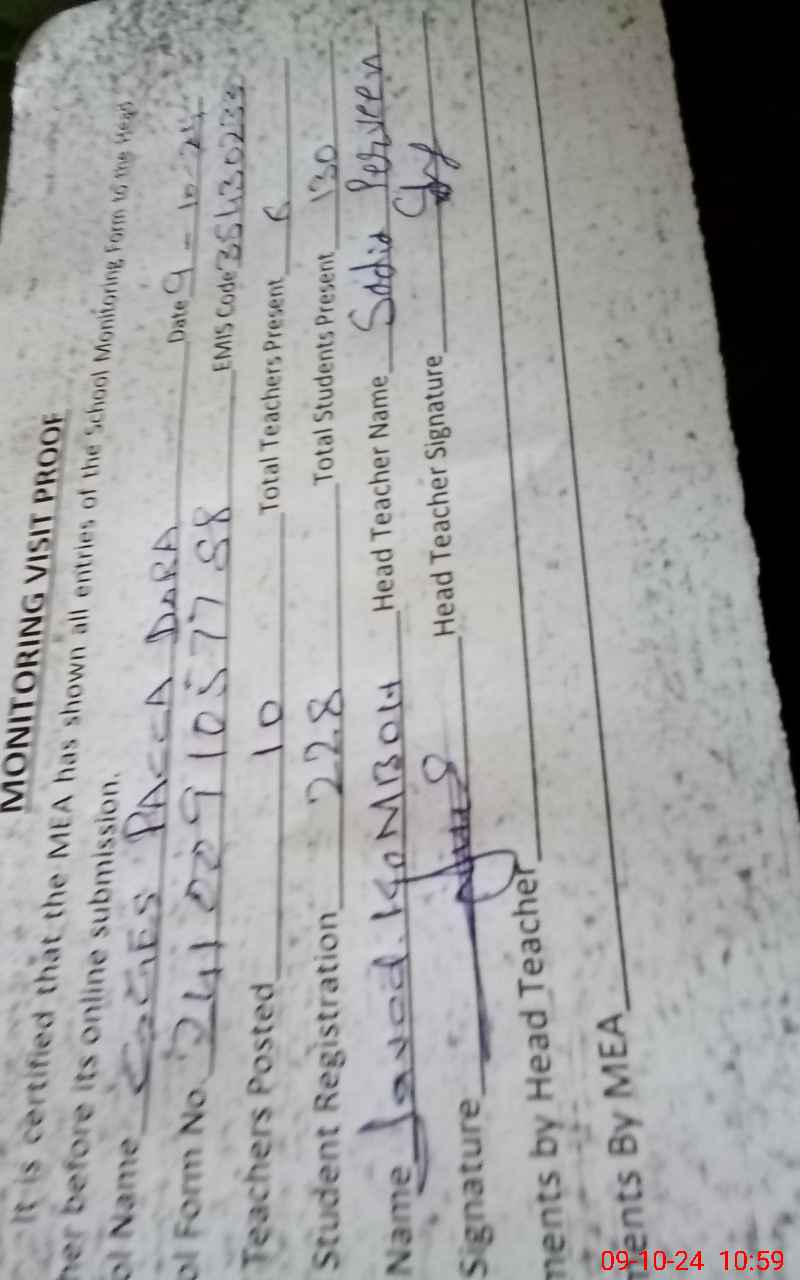 MONITORING VISIT PROOF
It is certified that the MEA has shown all entries of the School Monitoring Form to the Head
her before its online submission.
ol Name PACCA DARA Date 9-10-24
ol Form No. 2410091057788 EMIS Code 35430233
Teachers Posted 10 Total Teachers Present 6
Student Registration 228 Total Students Present 130
Name Javad. Head Teacher Name Sadia Perveen
Signature Head Teacher Signature
ments by Head Teacher
ents By MEA
09-10-24 10:59